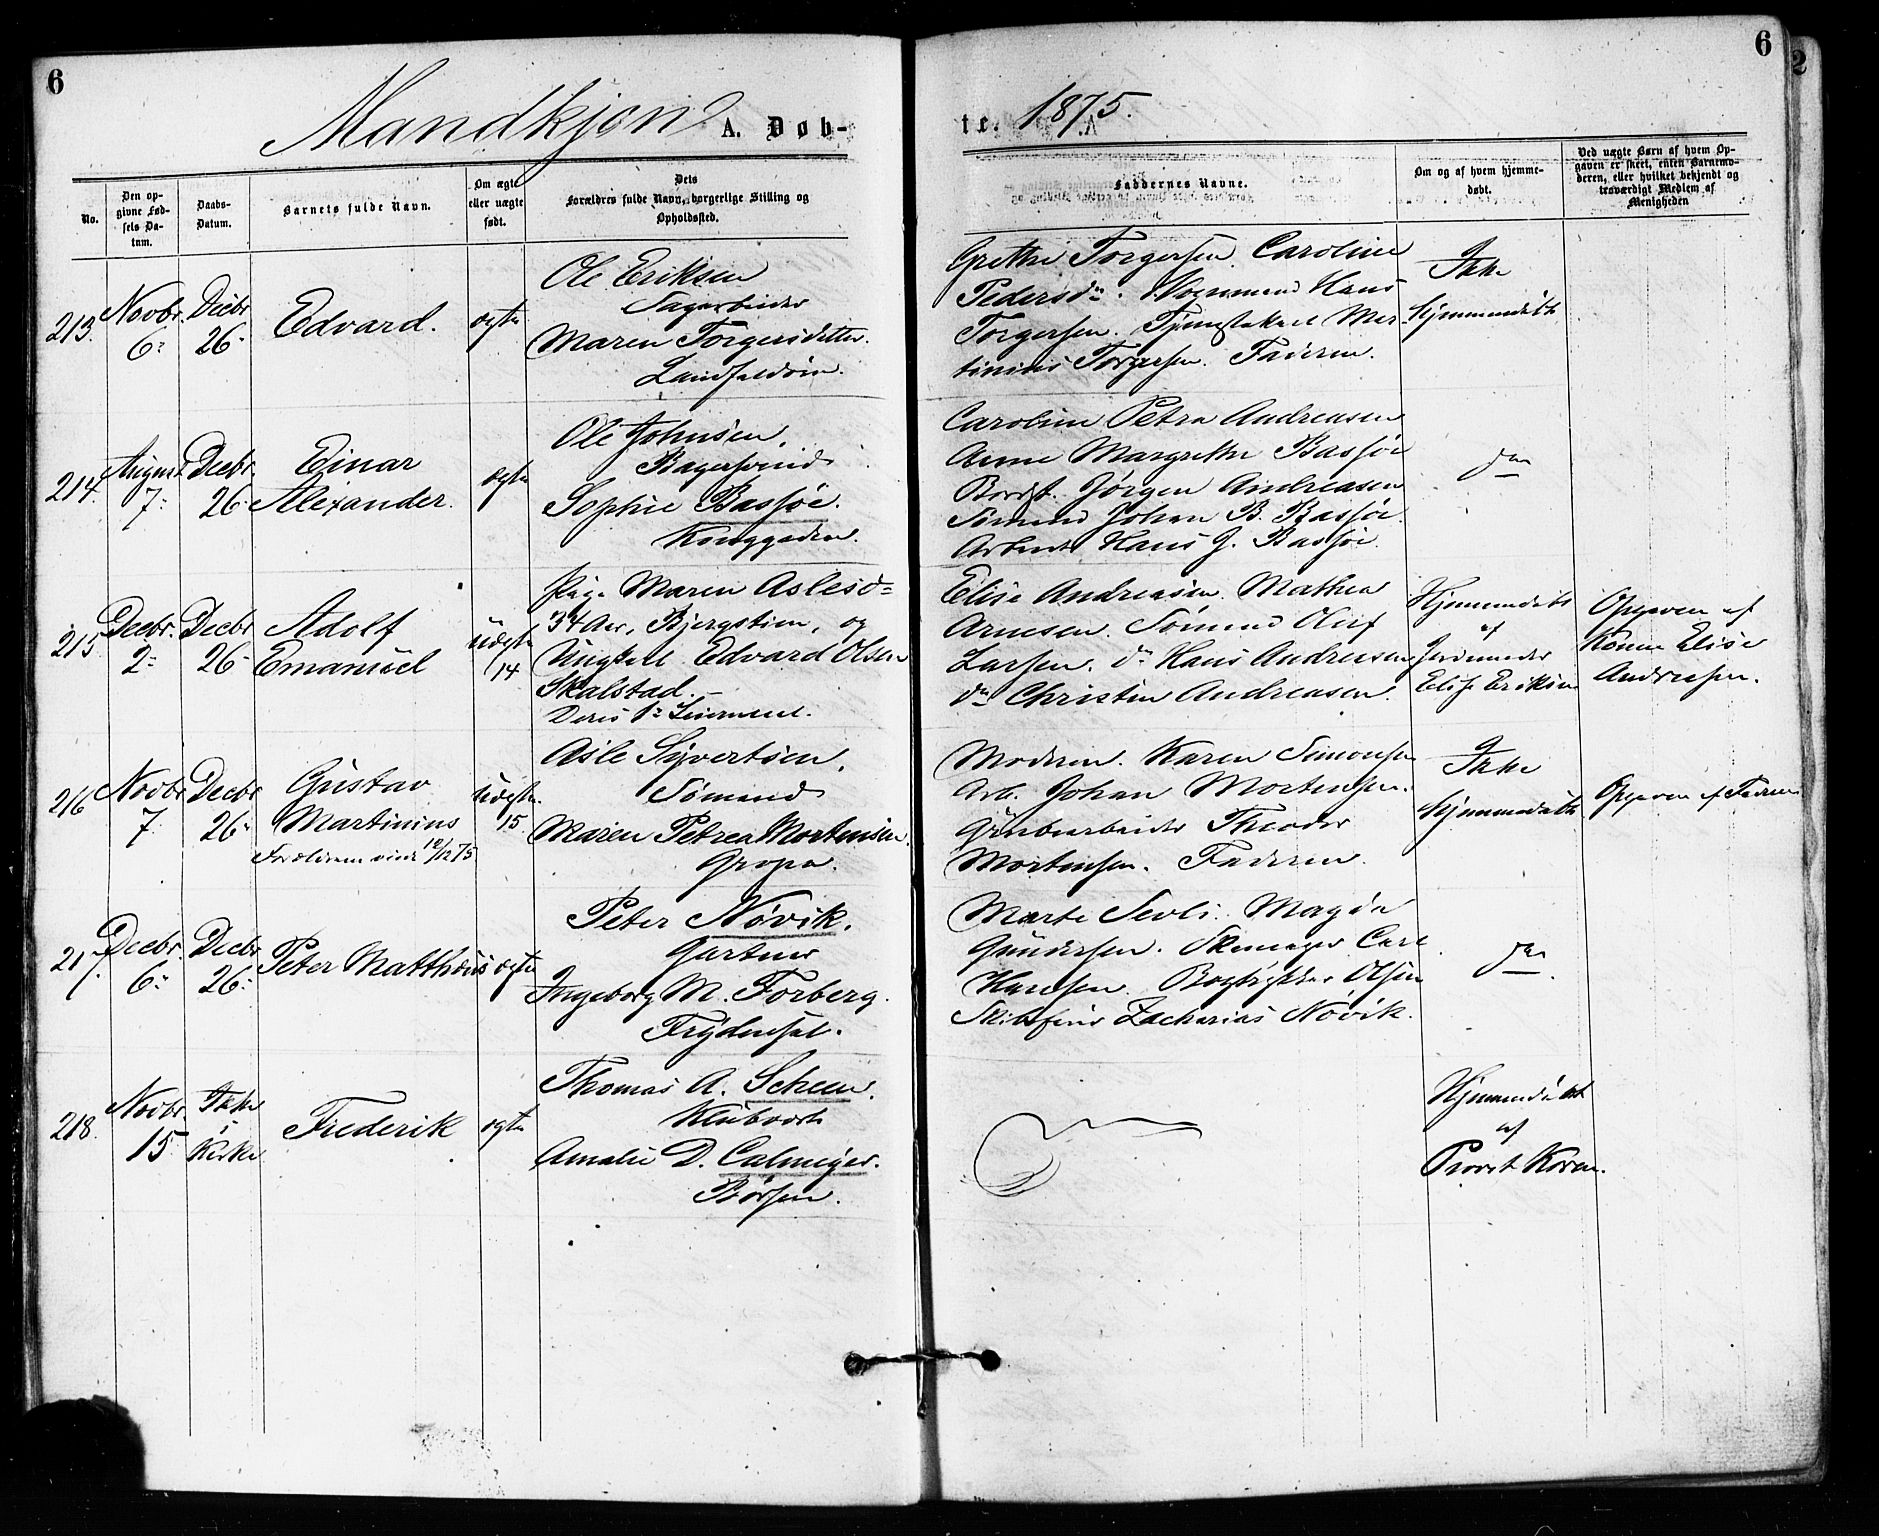 6
Mandkjøn A. Døb-
No.
Den op-
givne Fød-
sels Da-
tum.
Daabs-
Datum.
Barnets fulde Navn.
Om ægte
eller uægte
født.
Dets
Forældres fulde Navn, borgerlige Stilling og
Opholdssted.
213.
Novbr.
6
Decbr
26
Edvard.
ægte
Ole Eriksen
Sagarbeider
Maren Torgersdatter
Landfaldøen.
214.
August
7
Decbr
26
Einar
Alexander.
ægte
Ole Johnsen,
Bagersvend
Sophie Bassøe.
Konggaden.
215
Decbr.
2
Decbr
26
Adolf
Emanuel
Uægte
14
Pige Maren Aslesd
34 Aar, Bjergstien, og
Ungkarl Edvard Olsen
Skalstad.
Deres 1 Leiermaal.
216
Novbr
7
Decbr
26
Gustav
Martinius
Forældrene viede 12/12 75
Uægte.
15
Asle Syvertsen,
Sømand
Maren Petrea Mortensen
Gropa.
217
Decbr.
6
Decbr
26
Peter Matthæus
ægte
Peter Nøvik.
Gartner
Ingeborg M. Forberg.
Frydensal.
218.
Novbr.
15
Ikke
i
Kirke
Frederik
ægte
Thomas A. Scheen.
Klubvært
Amalie D. Calmeyer.
Børsen.
6
te. 1875.
Faddernes Navne.
Om og af hvem hjemme-
døbt.
Ved uægte Børn af hvem Op-
gaven er skeet, enten Barnemo-
deren, eller hvilket bekjendt og
troværdigt Medlem af
Menigheden
Grethe Torgersen. Caroline
Pedersdr. Vognmand Hans
Torgersen. Tjenestekarl Mar-
tinius Torgersen. Faderen.
Ikke
hjemmedøbt
Caroline Petra Andreasen
Anne Margrethe Bassøe
Jørgen Andreasen
Sømand Johan B. Bassøe.
Arbeid Hans J. Bassøe.
do
Elise Andreasen. Mathea
Arnesen. Sømand Oluf
Larsen. do Hans Andreasen
do Christen Andreasen.
Hjemmedøbt
af
Jordmoder
Elise Eriksen
Opgaven af
Konen Elise
Andreasen.
Moderen. Karen Simonsen
Arb. Johan Mortensen.
Grubearbeider Theodor
Mortensen. Faderen.
Ikke
hjemmedøbt
Opgaven af Faderen
Marte Magda
Gundersen. Skomager Carl
Hansen. Bogtrykker Olsen
Zacharias Nøvik.
do
Hjemmedøbt
af
Provst Koren.
2